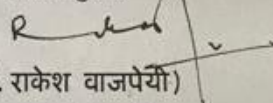 राकेश वाजपेयी)